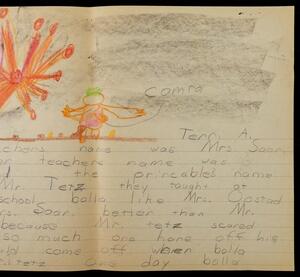 comra
Terri A.
chers name was Mrs. Soar,
er teachers name was
the princables name
Mr. Tetz they taught at
school. bolla like Mrs. Opstad
rs. Soar better than Mr.
because Mr. tetz scared
so much one hare off his
uld come off when bolla
r. tetz One day bolla